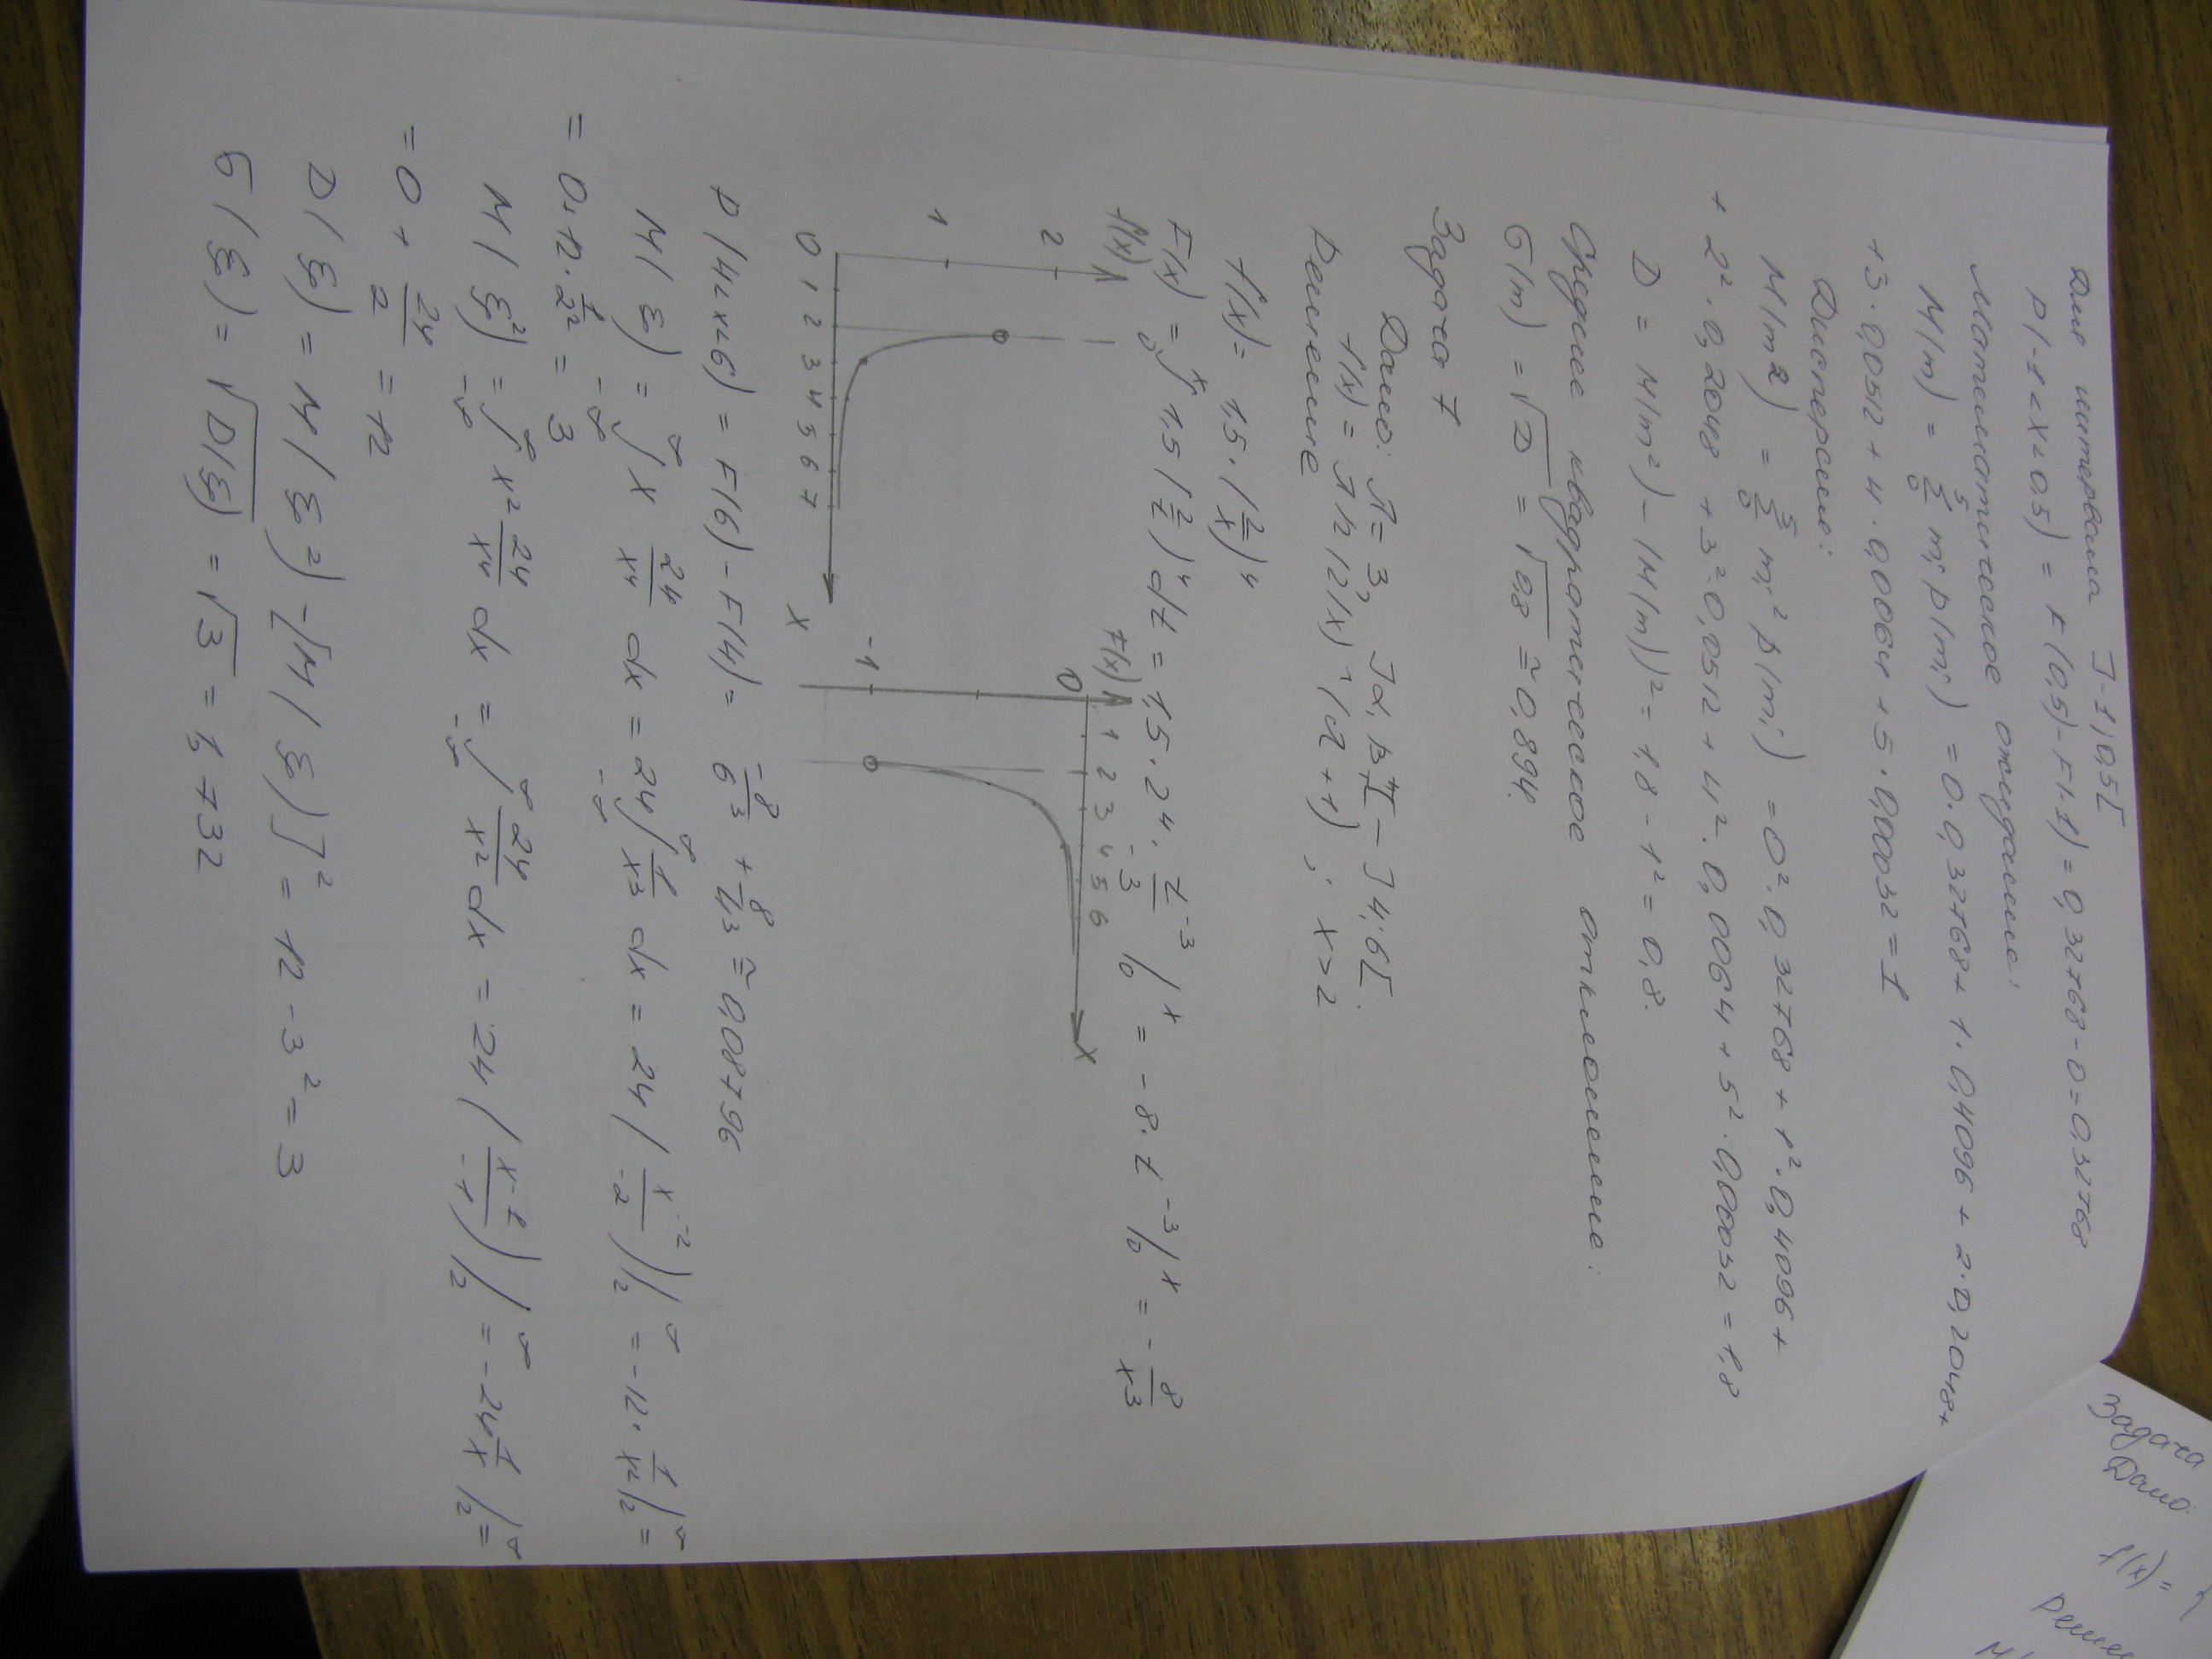 Для интервала ]-1; 0,5[
P(-1<x<0,5) = F(0,5)-F(-1) = 0,32768-0=0,32768
Математическое ожидание:
M(m) = Σ mᵢ p(mᵢ) = 0·0,32768+ 1·0,4096+ 2·0,2048+
+3·0,0512+ 4·0,0064+5·0,00032=1
Дисперсия:
M(m²) = Σ mᵢ² p(mᵢ) = 0²·0,32768+1²·0,4096+
+2²·0,2048+3²·0,0512+4²·0,0064+5²·0,00032=1,8
D = M(m²)-(M(m))²=1,8-1²=0,8.
Среднее квадратическое отклонение:
σ(m) = √D = √0,8 ≅ 0,894.
Задача 7
Дано: λ=3, ]α, β[ = ]4; 6[.
Решение
f(x)= 1,5·(2/x)⁴
F(x) = ∫₀ˣ 1,5(2/t)⁴dt = 1,5·2⁴· t⁻³/-3 |₀ˣ = -8·t⁻³|₀ˣ = -8/x³
f(x)
2
1
0 1 2 3 4 5 6 7
x
F(x)
0 1 2 3 4 5 6
-1
x
P(4<x<6) = F(6)-F(4) = -8/6³ + 8/4³ ≅ 0,08796
M(ξ) = ∫ x 24/x⁴ dx = 24∫ 1/x³ dx = 24(x⁻²/-2)|₂^∞ = -12·1/x²|₂^∞ =
= 0+12·1/2² = 3
M(ξ²) = ∫ x² 24/x⁴ dx = ∫ 24/x² dx = 24(x⁻¹/-1)|₂^∞ = -24 1/x |₂^∞ =
=0+ 24/2 = 12
D(ξ) = M(ξ²)-[M(ξ)]² = 12-3²=3
σ(ξ) = √D(ξ) = √3 = 1,732
Задача
Дано:
f(x)=